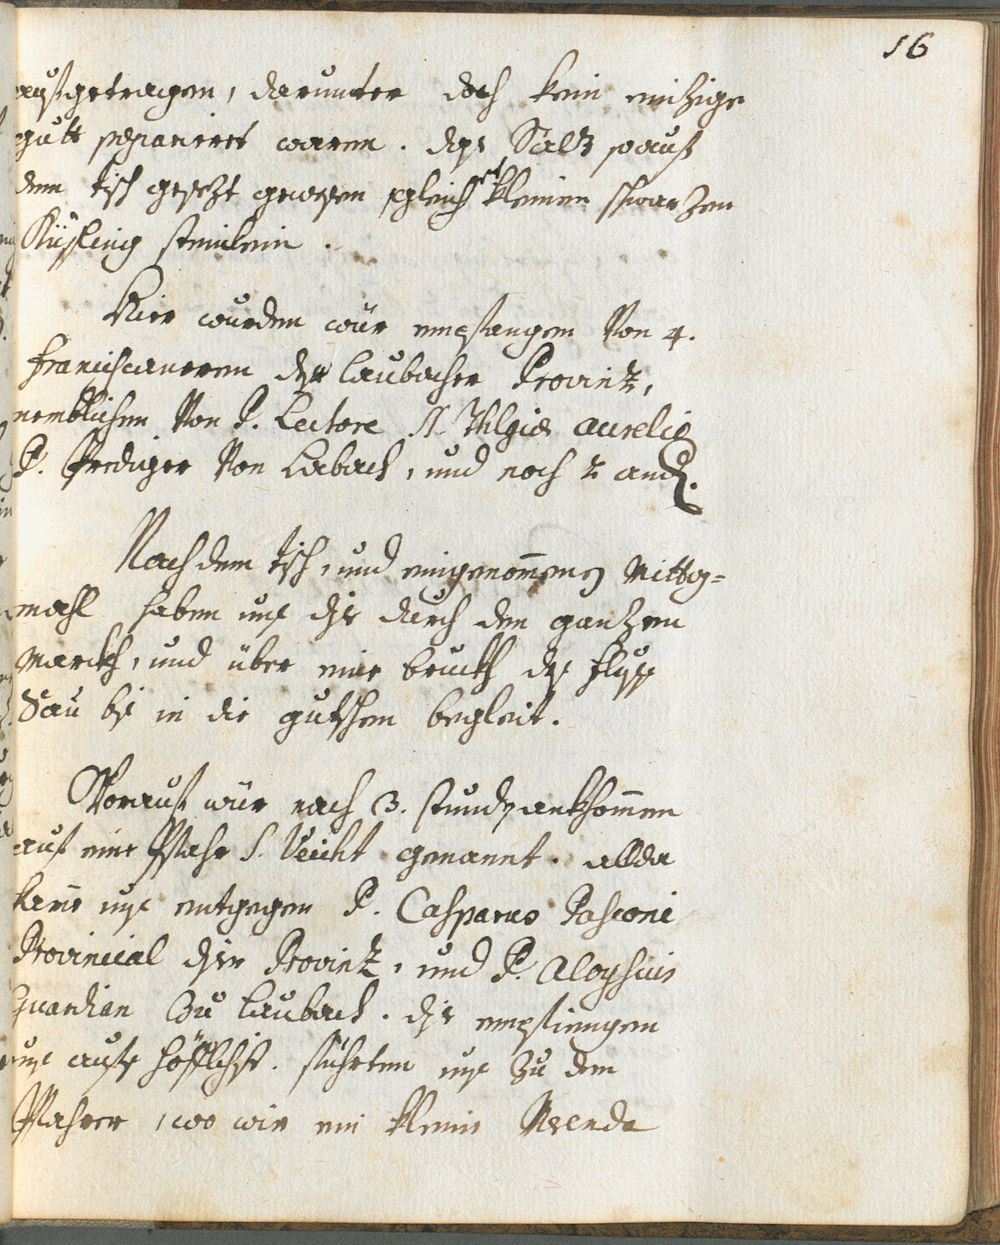 16
aufgetragen, darunter doch kein einzige
gutt separiert waren. das Saltz so auf
dem tisch gesetzt gewesen gleich et kleinen schwarzen
Küsling steinlein.
Hier wurden wür empfangen Von 4.
Franciscaneren der laubacher Provintz,
nemblichen Von P. Lectore Aurelio
P. Prediger Von Labach, und noch 2 and.
Nach dem tisch, und eingenommenen Mittag=
mahl haben uns dise durch den gantzen
Marckh, und über eine bruckh des fluss
Sau bis in die gutschen begleit.
Worauf wür nach 3. stunden ankhommen
auf eine Pfahr S. Veicht genannt. allda
kame uns entgegen P. Casparus Pasconi
Provincial diser Provintz, und P. Aloysius
Guardian Zu laubach. dise empfiengen
uns aufs höfflichst. führten uns Zu dem
Pfahrer, wo wir ein kleine Merenda